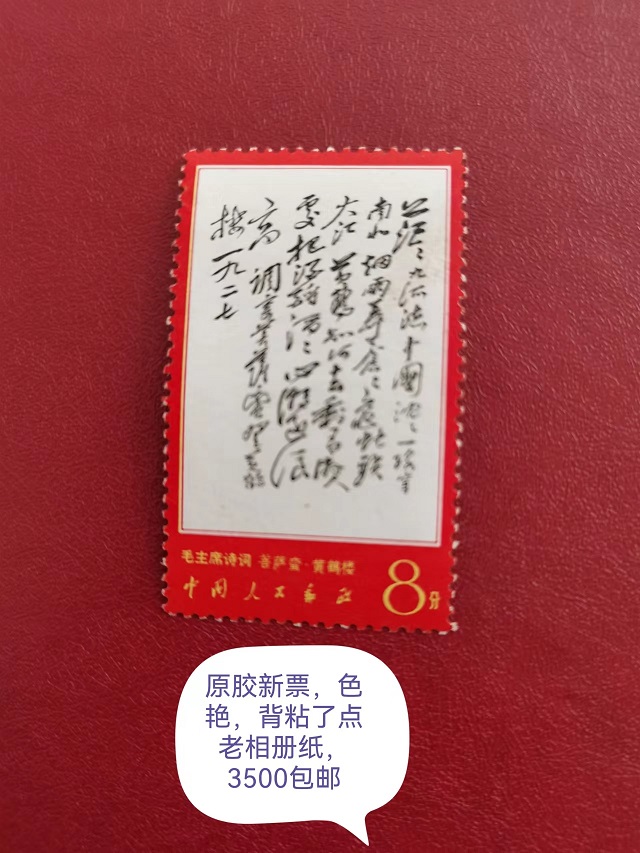 茫茫九派流中国沉沉一线穿
南北烟雨莽苍苍龟蛇锁
大江黄鹤知何去剩有游人
处把酒酹滔滔心潮逐浪
高调寄菩萨蛮
楼一九二七
毛主席诗词 菩萨蛮·黄鹤楼
中国人民邮政
8分
原胶新票，色
艳，背粘了点
老相册纸，
3500包邮